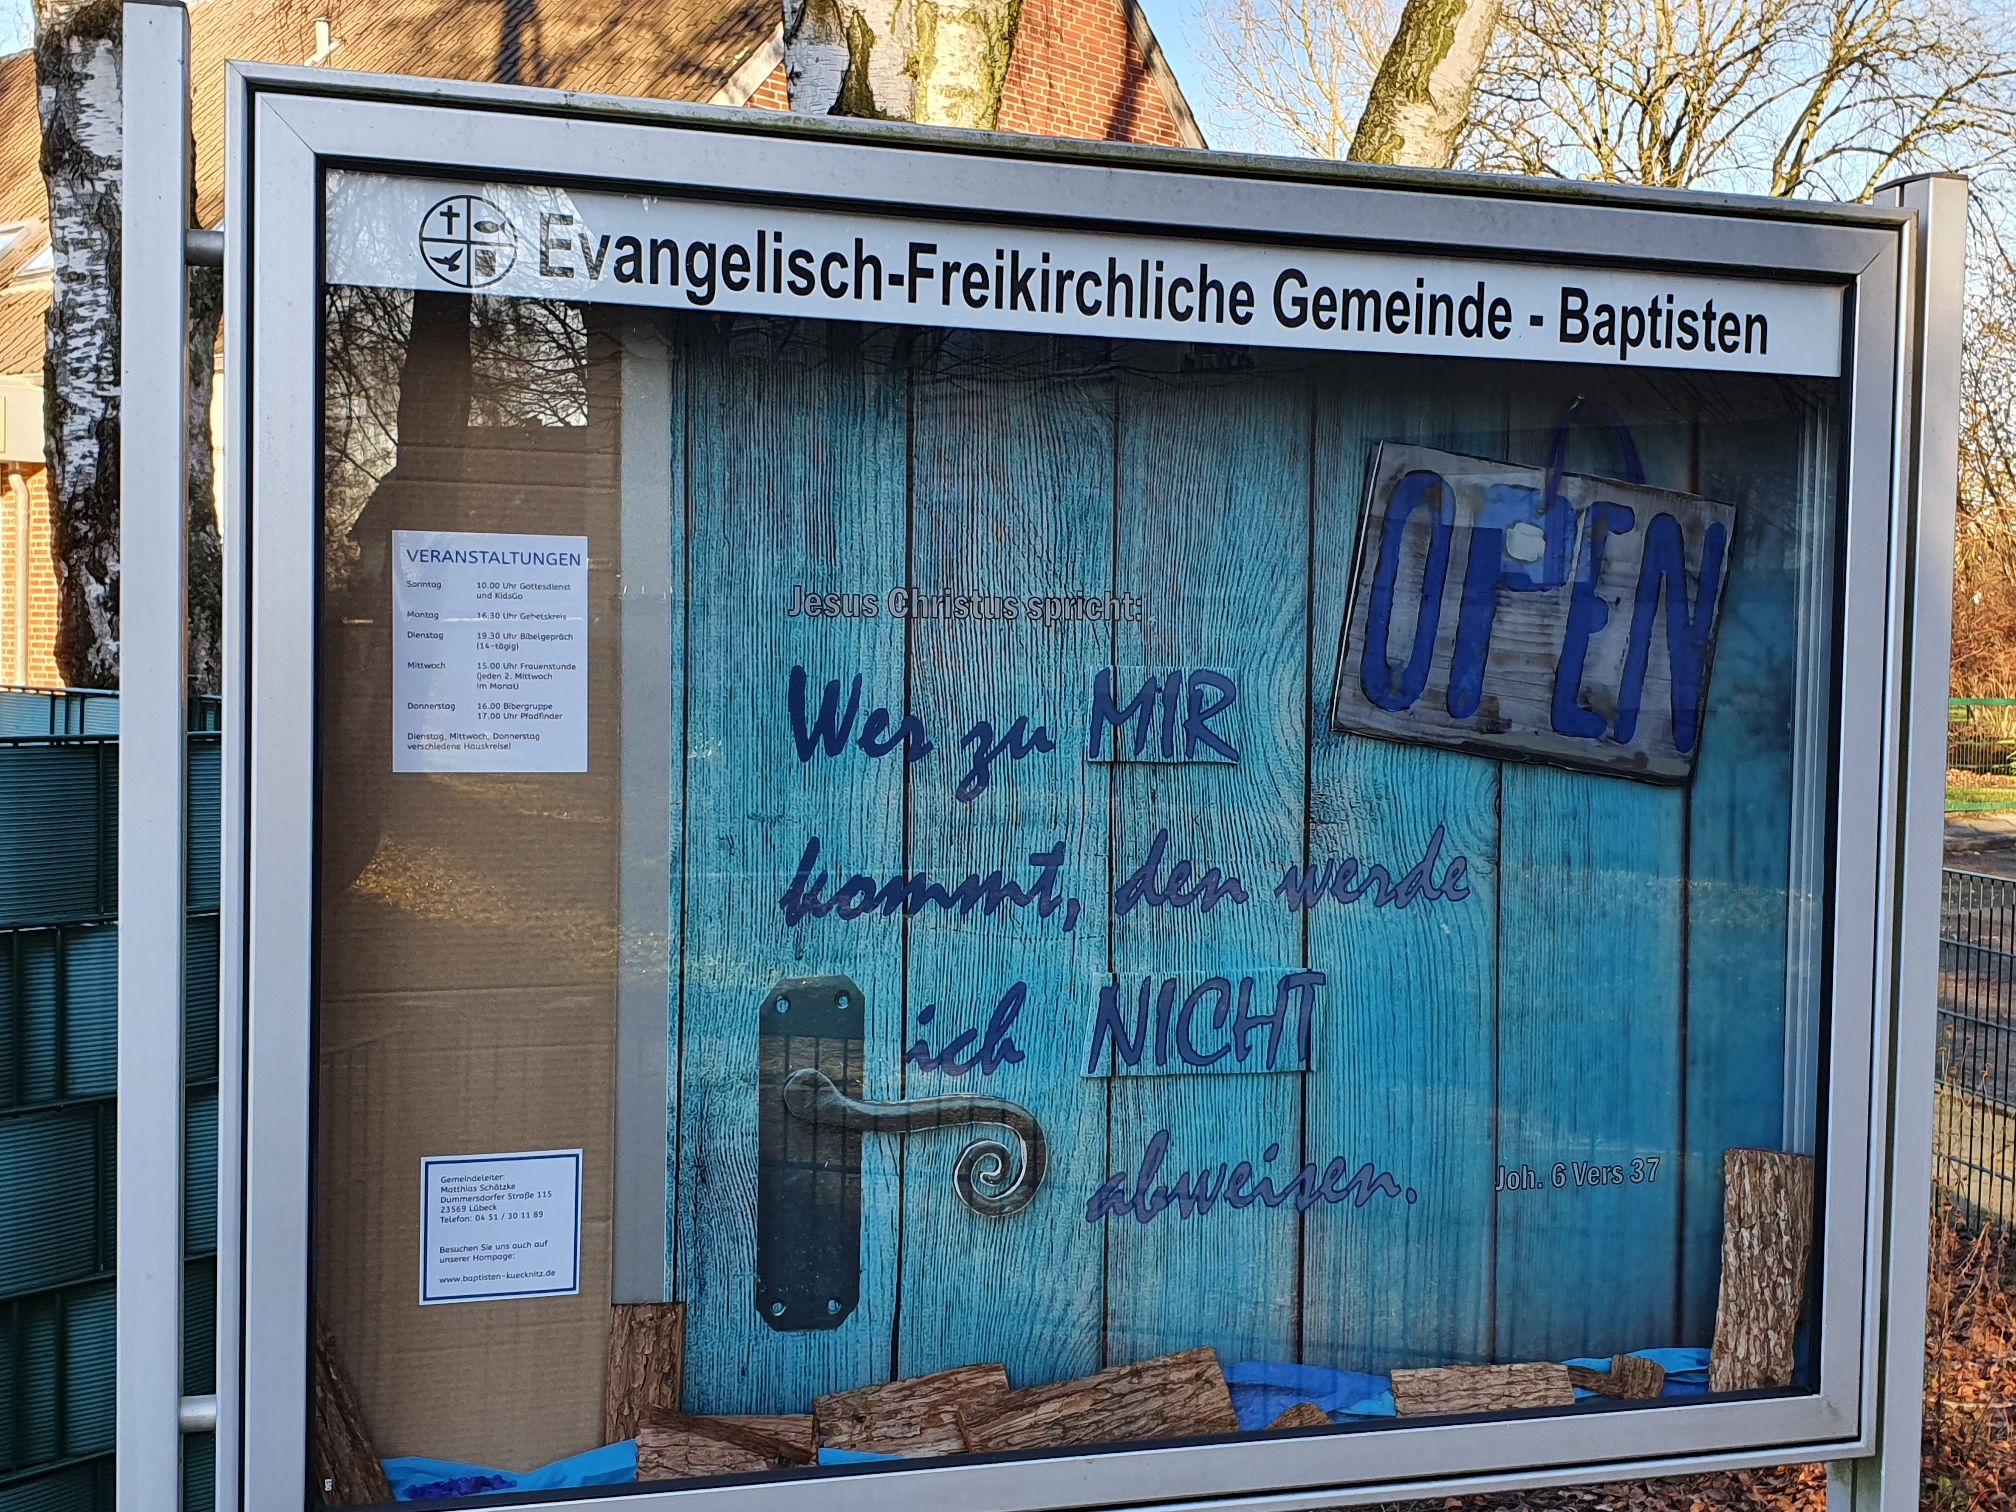 Evangelisch-Freikirchliche Gemeinde - Baptisten
VERANSTALTUNGEN
Sonntag 10.00 Uhr Gottesdienst
und KidsGo
Montag 16.30 Uhr Gebetskreis
Dienstag 19.30 Uhr Bibelgepräch
(14-tägig)
Mittwoch 15.00 Uhr Frauenstunde
(jeden 2. Mittwoch
im Monat)
Donnerstag 16.00 Bibergruppe
17.00 Uhr Pfadfinder
Dienstag, Mittwoch, Donnerstag
verschiedene Hauskreise!
Gemeindeleiter:
Matthias Schätzke
Dummersdorfer Straße 115
23569 Lübeck
Telefon: 04 51 / 30 11 89
Besuchen Sie uns auch auf
unserer Hompage:
www.baptisten-kuecknitz.de
OPEN
Jesus Christus spricht:
Wer zu MIR
kommt, den werde
ich NICHT
abweisen.
Joh. 6 Vers 37